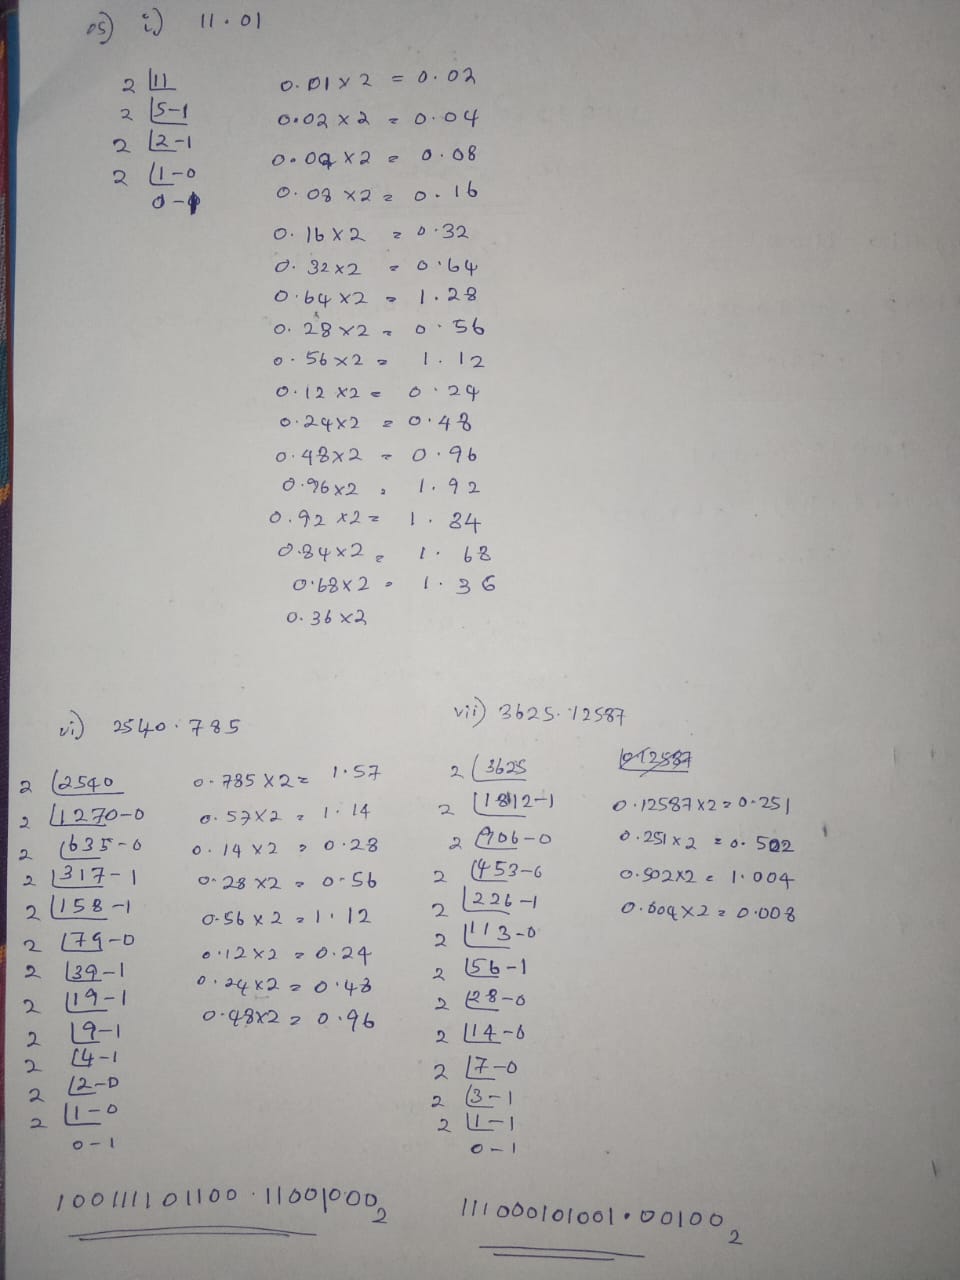 05) i) 11.01
2 11
2 5-1
2 2-1
2 1-0
0-1
0.01 x 2 = 0.02
0.02 x 2 = 0.04
0.04 x 2 = 0.08
0.08 x 2 = 0.16
0.16 x 2 = 0.32
0.32 x 2 = 0.64
0.64 x 2 = 1.28
0.28 x 2 = 0.56
0.56 x 2 = 1.12
0.12 x 2 = 0.24
0.24 x 2 = 0.48
0.48 x 2 = 0.96
0.96 x 2 = 1.92
0.92 x 2 = 1.84
0.84 x 2 = 1.68
0.68 x 2 = 1.36
0.36 x 2
vi) 2540.785
2 2540
2 1270-0
2 635-0
2 317-1
2 158-1
2 79-0
2 39-1
2 19-1
2 9-1
2 4-1
2 2-0
2 1-0
0-1
0.785 x 2 = 1.57
0.57 x 2 = 1.14
0.14 x 2 = 0.28
0.28 x 2 = 0.56
0.56 x 2 = 1.12
0.12 x 2 = 0.24
0.24 x 2 = 0.48
0.48 x 2 = 0.96
100111101100.11001000₂
vii) 3625.12587
2 3625
2 1812-1
2 906-0
2 453-0
2 226-1
2 113-0
2 56-1
2 28-0
2 14-0
2 7-0
2 3-1
2 1-1
0-1
0.12587
0.12587 x 2 = 0.251
0.251 x 2 = 0.502
0.502 x 2 = 1.004
0.004 x 2 = 0.008
111000101001.00100₂